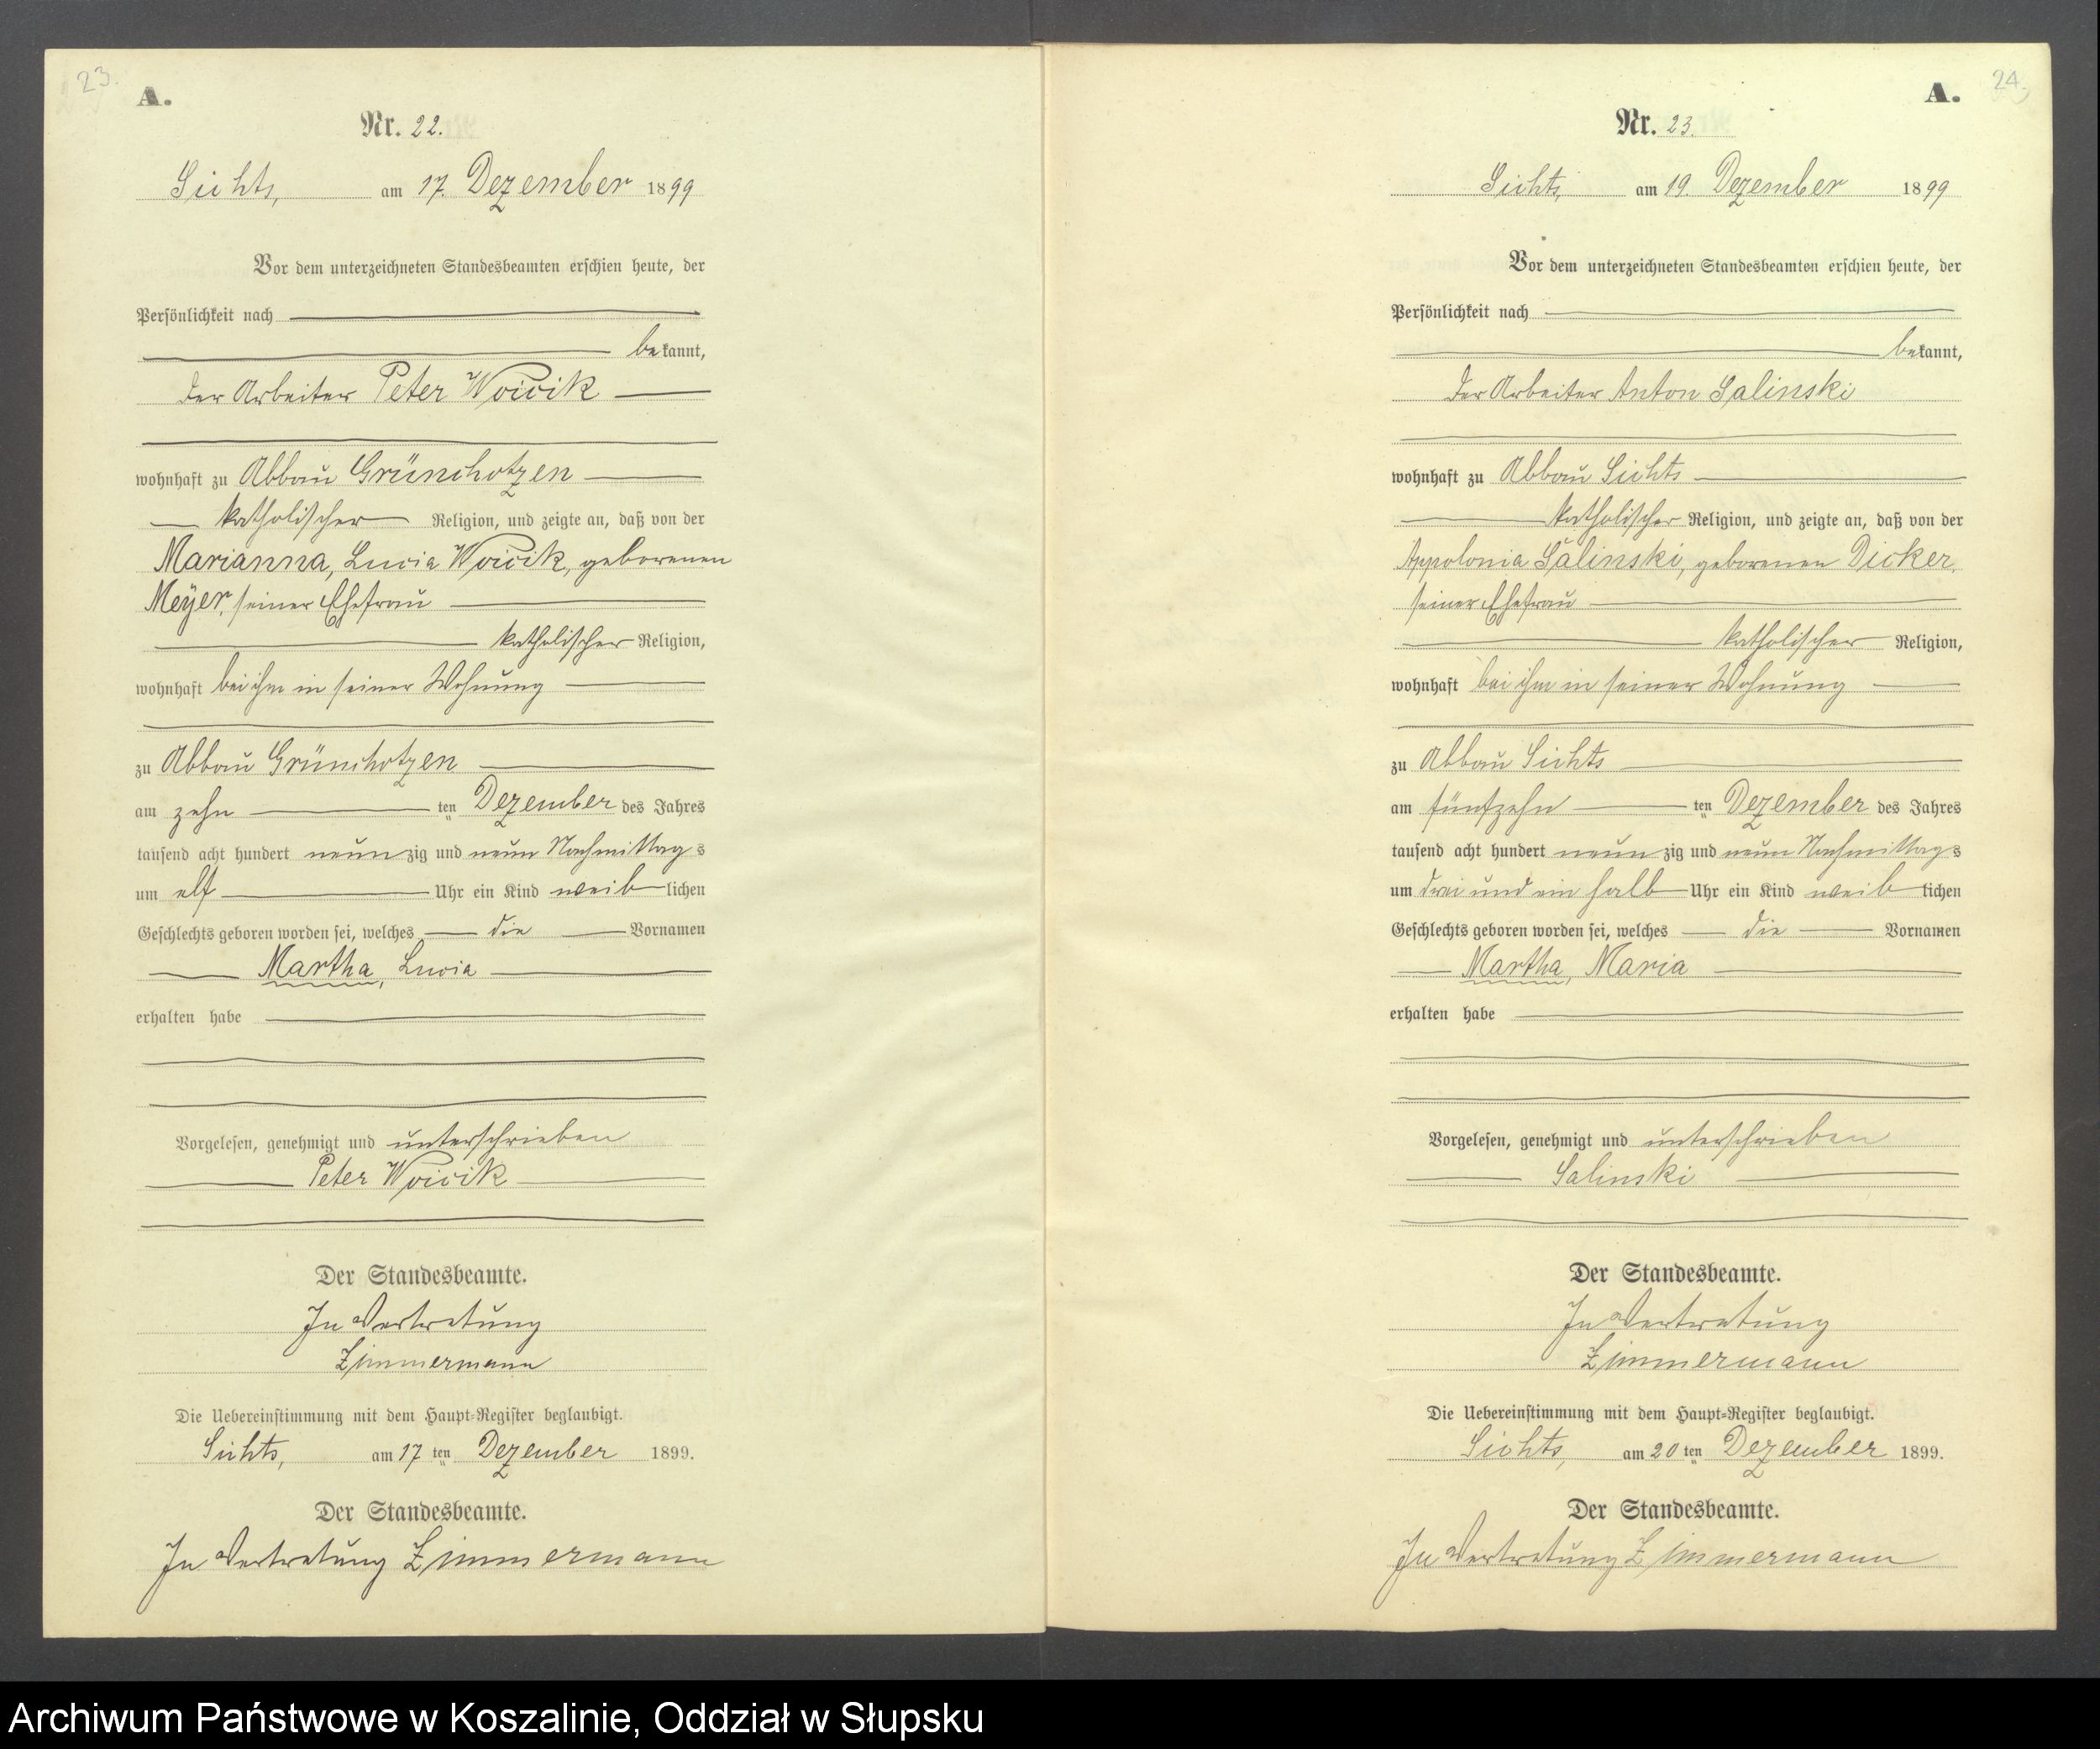 23.
A.
Nr. 22.
Sichts, am 17. Dezember 1899
Vor dem unterzeichneten Standesbeamten erschien heute, der
Persönlichkeit nach
bekannt,
der Arbeiter Peter Woicik
wohnhaft zu Abbau Grünchotzen
katholischer Religion, und zeigte an, daß von der
Marianna, Lucia Woicik, geborenen
Meyer, seiner Ehefrau
katholischer Religion,
wohnhaft bei ihm in seiner Wohnung
zu Abbau Grünchotzen
am zehn ten Dezember des Jahres
tausend acht hundert neunzig und neun Nachmittags
um elf Uhr ein Kind weiblichen
Geschlechts geboren worden sei, welches die Vornamen
Martha, Lucia
erhalten habe
Vorgelesen, genehmigt und unterschrieben
Peter Woicik
Der Standesbeamte.
In Vertretung
Zimmermann
Die Uebereinstimmung mit dem Haupt-Register beglaubigt.
Sichts, am 17 ten Dezember 1899.
Der Standesbeamte.
In Vertretung Zimmermann
24.
A.
Nr. 23.
Sichts, am 19. Dezember 1899
Vor dem unterzeichneten Standesbeamten erschien heute, der
Persönlichkeit nach
bekannt,
der Arbeiter Anton Salinski
wohnhaft zu Abbau Sichts
katholischer Religion, und zeigte an, daß von der
Appolonia Salinski, geborenen Dicker,
seiner Ehefrau
katholischer Religion,
wohnhaft bei ihm in seiner Wohnung
zu Abbau Sichts
am fünfzehn ten Dezember des Jahres
tausend acht hundert neunzig und neun Nachmittags
um drei und ein halb Uhr ein Kind weiblichen
Geschlechts geboren worden sei, welches die Vornamen
Martha, Maria
erhalten habe
Vorgelesen, genehmigt und unterschrieben
Salinski
Der Standesbeamte.
In Vertretung
Zimmermann
Die Uebereinstimmung mit dem Haupt-Register beglaubigt.
Sichts, am 20 ten Dezember 1899.
Der Standesbeamte.
In Vertretung Zimmermann
Archiwum Państwowe w Koszalinie, Oddział w Słupsku